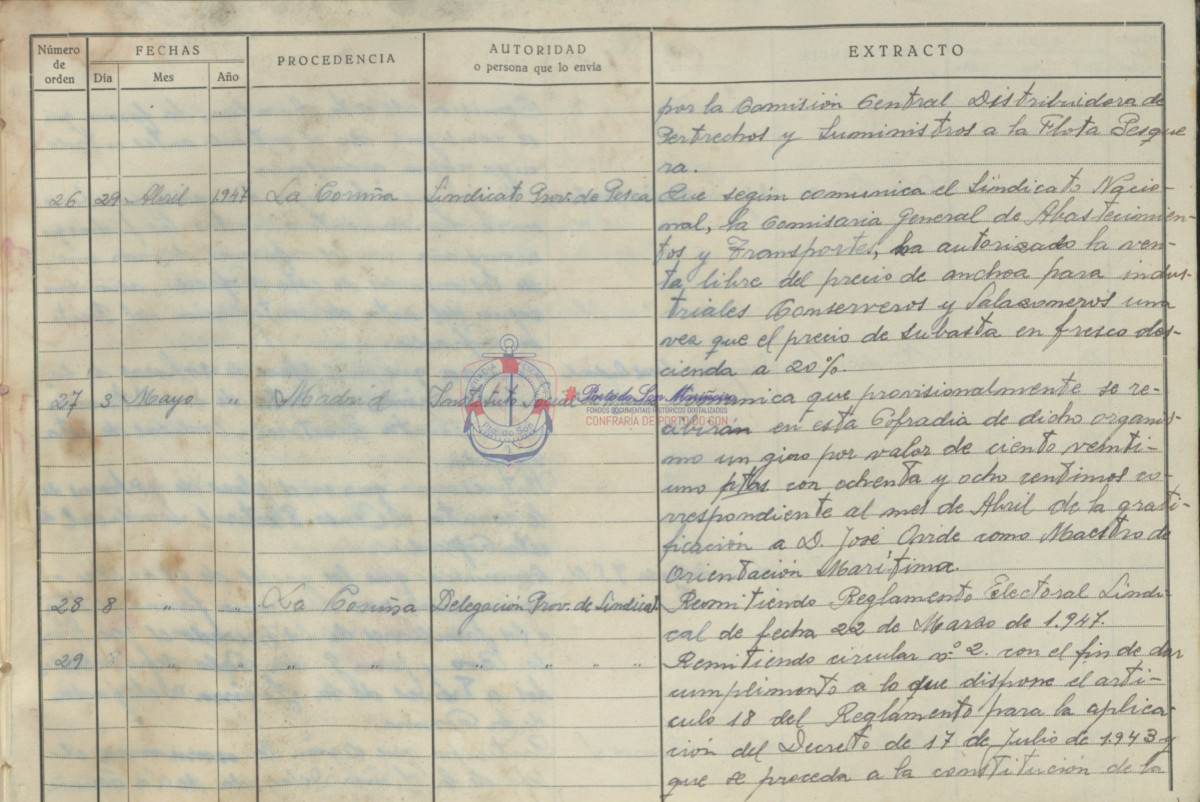 Número de orden
FECHAS
Día Mes Año
PROCEDENCIA
AUTORIDAD
o persona que lo envía
EXTRACTO
por la Comisión Central Distribuidora de
Pertrechos y Suministros a la Flota Pesque
ra.
26 29 Abril 1.947 La Coruña Sindicato Prov. de Pesca Que según comunica el Sindicato Nacio-
nal, la Comisaria General de Abastecimien-
tos y Transportes, ha autorizado la ven-
ta libre del precio de anchoa para indus-
triales Conserveros y Salazoneros una
vez que el precio de subasta en fresco des-
cienda a 20%.
27 3 Mayo " Madrid Instituto Social que provisionalmente se re-
cibirán en esta Cofradia de dicho organis-
mo un giro por valor de ciento veinti-
uno ptas con ochenta y ocho centimos co-
rrespondiente al mes de Abril de la grati-
ficación a D. José Ovide como Maestro de
Orientación Marítima.
28 8 " " La Coruña Delegación Prov. de Sindicat. Remitiendo Reglamento Electoral Sindi-
cal de fecha 22 de Marzo de 1.947.
29 " " " " " " " " Remitiendo circular n.º 2. con el fin de dar
cumplimento a lo que dispone el arti-
culo 18 del Reglamento para la aplica-
ción del Decreto de 17 de Julio de 1.943 y
que se proceda a la constitución de la
Porto do Son
FONDOS DOCUMENTAIS HISTÓRICOS DIGITALIZADOS
CONFRARÍA DE PORTO DO SON